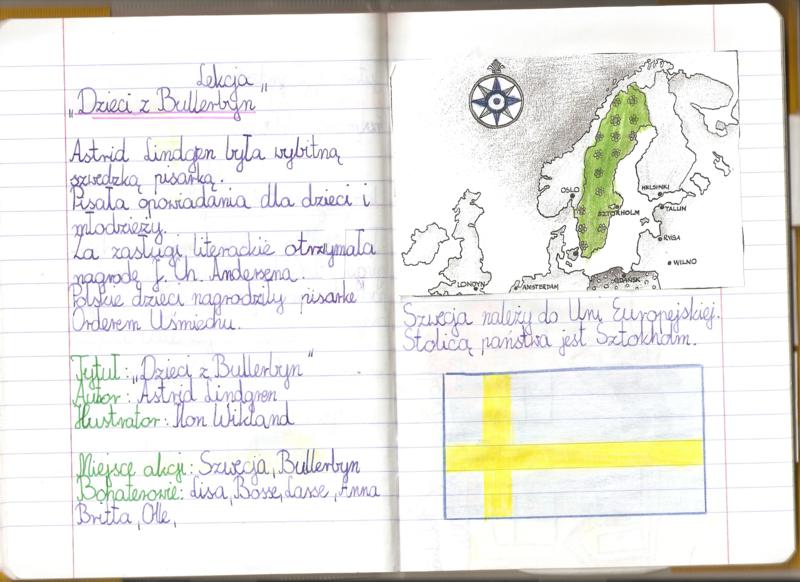 Lekcja
„Dzieci z Bullerbyn"
Astrid Lindgren była wybitną
szwedzką pisarką.
Pisała opowiadania dla dzieci i
młodzieży.
Za zasługi literackie otrzymała
nagrodę J. Ch. Andersena.
Polskie dzieci nagrodziły pisarkę
Orderem Uśmiechu.
Tytuł: „Dzieci z Bullerbyn"
Autor: Astrid Lindgren
Ilustrator: Ilon Wikland
Miejsce akcji: Szwecja, Bullerbyn
Bohaterowie: Lisa, Bosse, Lasse, Anna
Britta, Olle,
OSLO
HELSINKI
SZTOKHOLM
TALIN
RYGA
WILNO
LONDYN
AMSTERDAM
GDAŃSK
Szwecja należy do Uni Europejskiej.
Stolicą państwa jest Sztokholm.